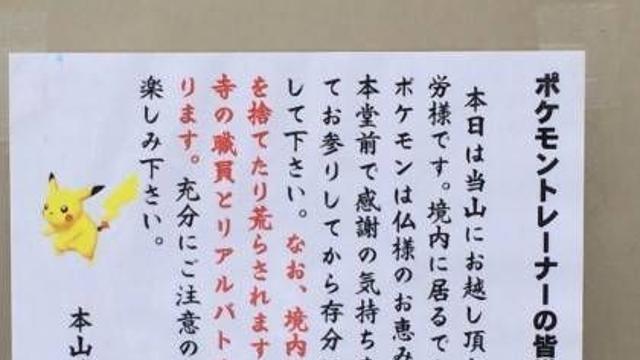 ポケモントレーナーの皆
本日は当山にお越し頂
労様です。境内に居るで
ポケモンは仏様のお恵み
本堂前で感謝の気持ち
てお参りしてから存分
して下さい。なお、境内
を捨てたり荒らされます
寺の職員とリアルバト
ります。充分にご注意の
楽しみ下さい。
本山